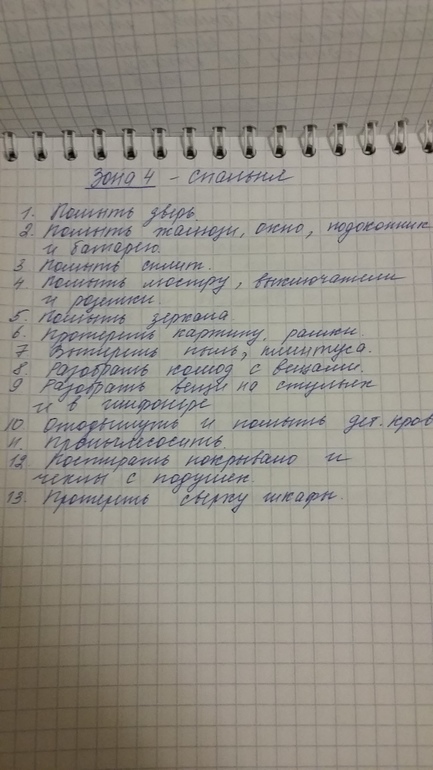 Зона 4 - спальня
1. Помыть дверь.
2. Помыть жалюзи, окно, подоконник
и батарею.
3. Помыть сплит.
4 Помыть люстру, выключатели
и розетки.
5. Помыть зеркала
6. Протереть картину, рамки.
7 Вытереть пыль, плинтуса.
8. Разобрать комод с вещами.
9 Разобрать вещи на стульях
и в шифонере
10. Отодвинуть и помыть дет. кров
11. Пропылесосить.
12. Постирать покрывало и
чехлы с подушек.
13. Протереть сверху шкафы.